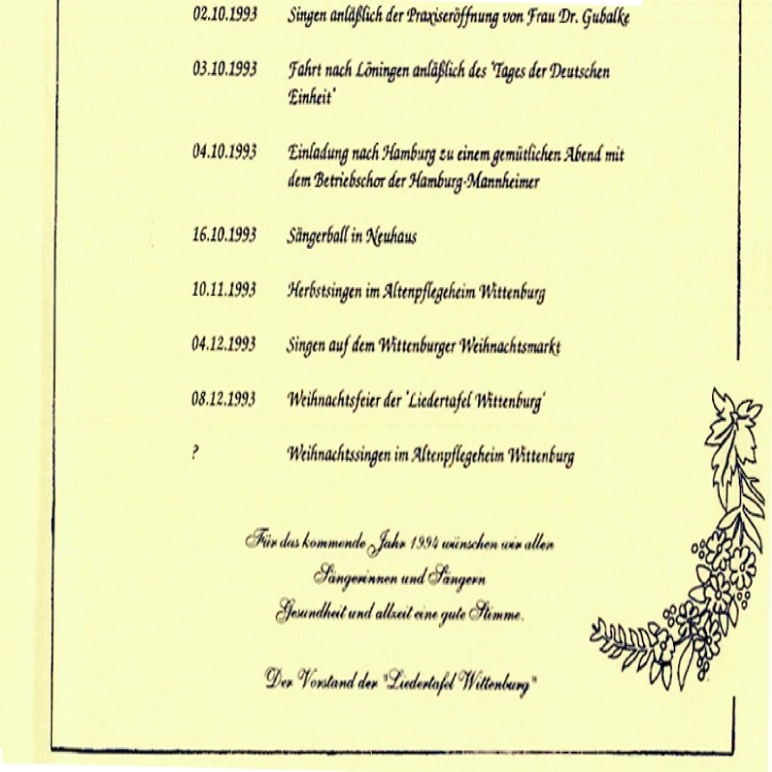 02.10.1993 Singen anläßlich der Praxiseröffnung von Frau Dr. Gubalke
03.10.1993 Fahrt nach Löningen anläßlich des 'Tages der Deutschen
Einheit'
04.10.1993 Einladung nach Hamburg zu einem gemütlichen Abend mit
dem Betriebschor der Hamburg-Mannheimer
16.10.1993 Sängerball in Neuhaus
10.11.1993 Herbstsingen im Altenpflegeheim Wittenburg
04.12.1993 Singen auf dem Wittenburger Weihnachtsmarkt
08.12.1993 Weihnachtsfeier der 'Liedertafel Wittenburg'
? Weihnachtssingen im Altenpflegeheim Wittenburg
Für das kommende Jahr 1994 wünschen wir allen
Sängerinnen und Sängern
Gesundheit und allzeit eine gute Stimme.
Der Vorstand der "Liedertafel Wittenburg"